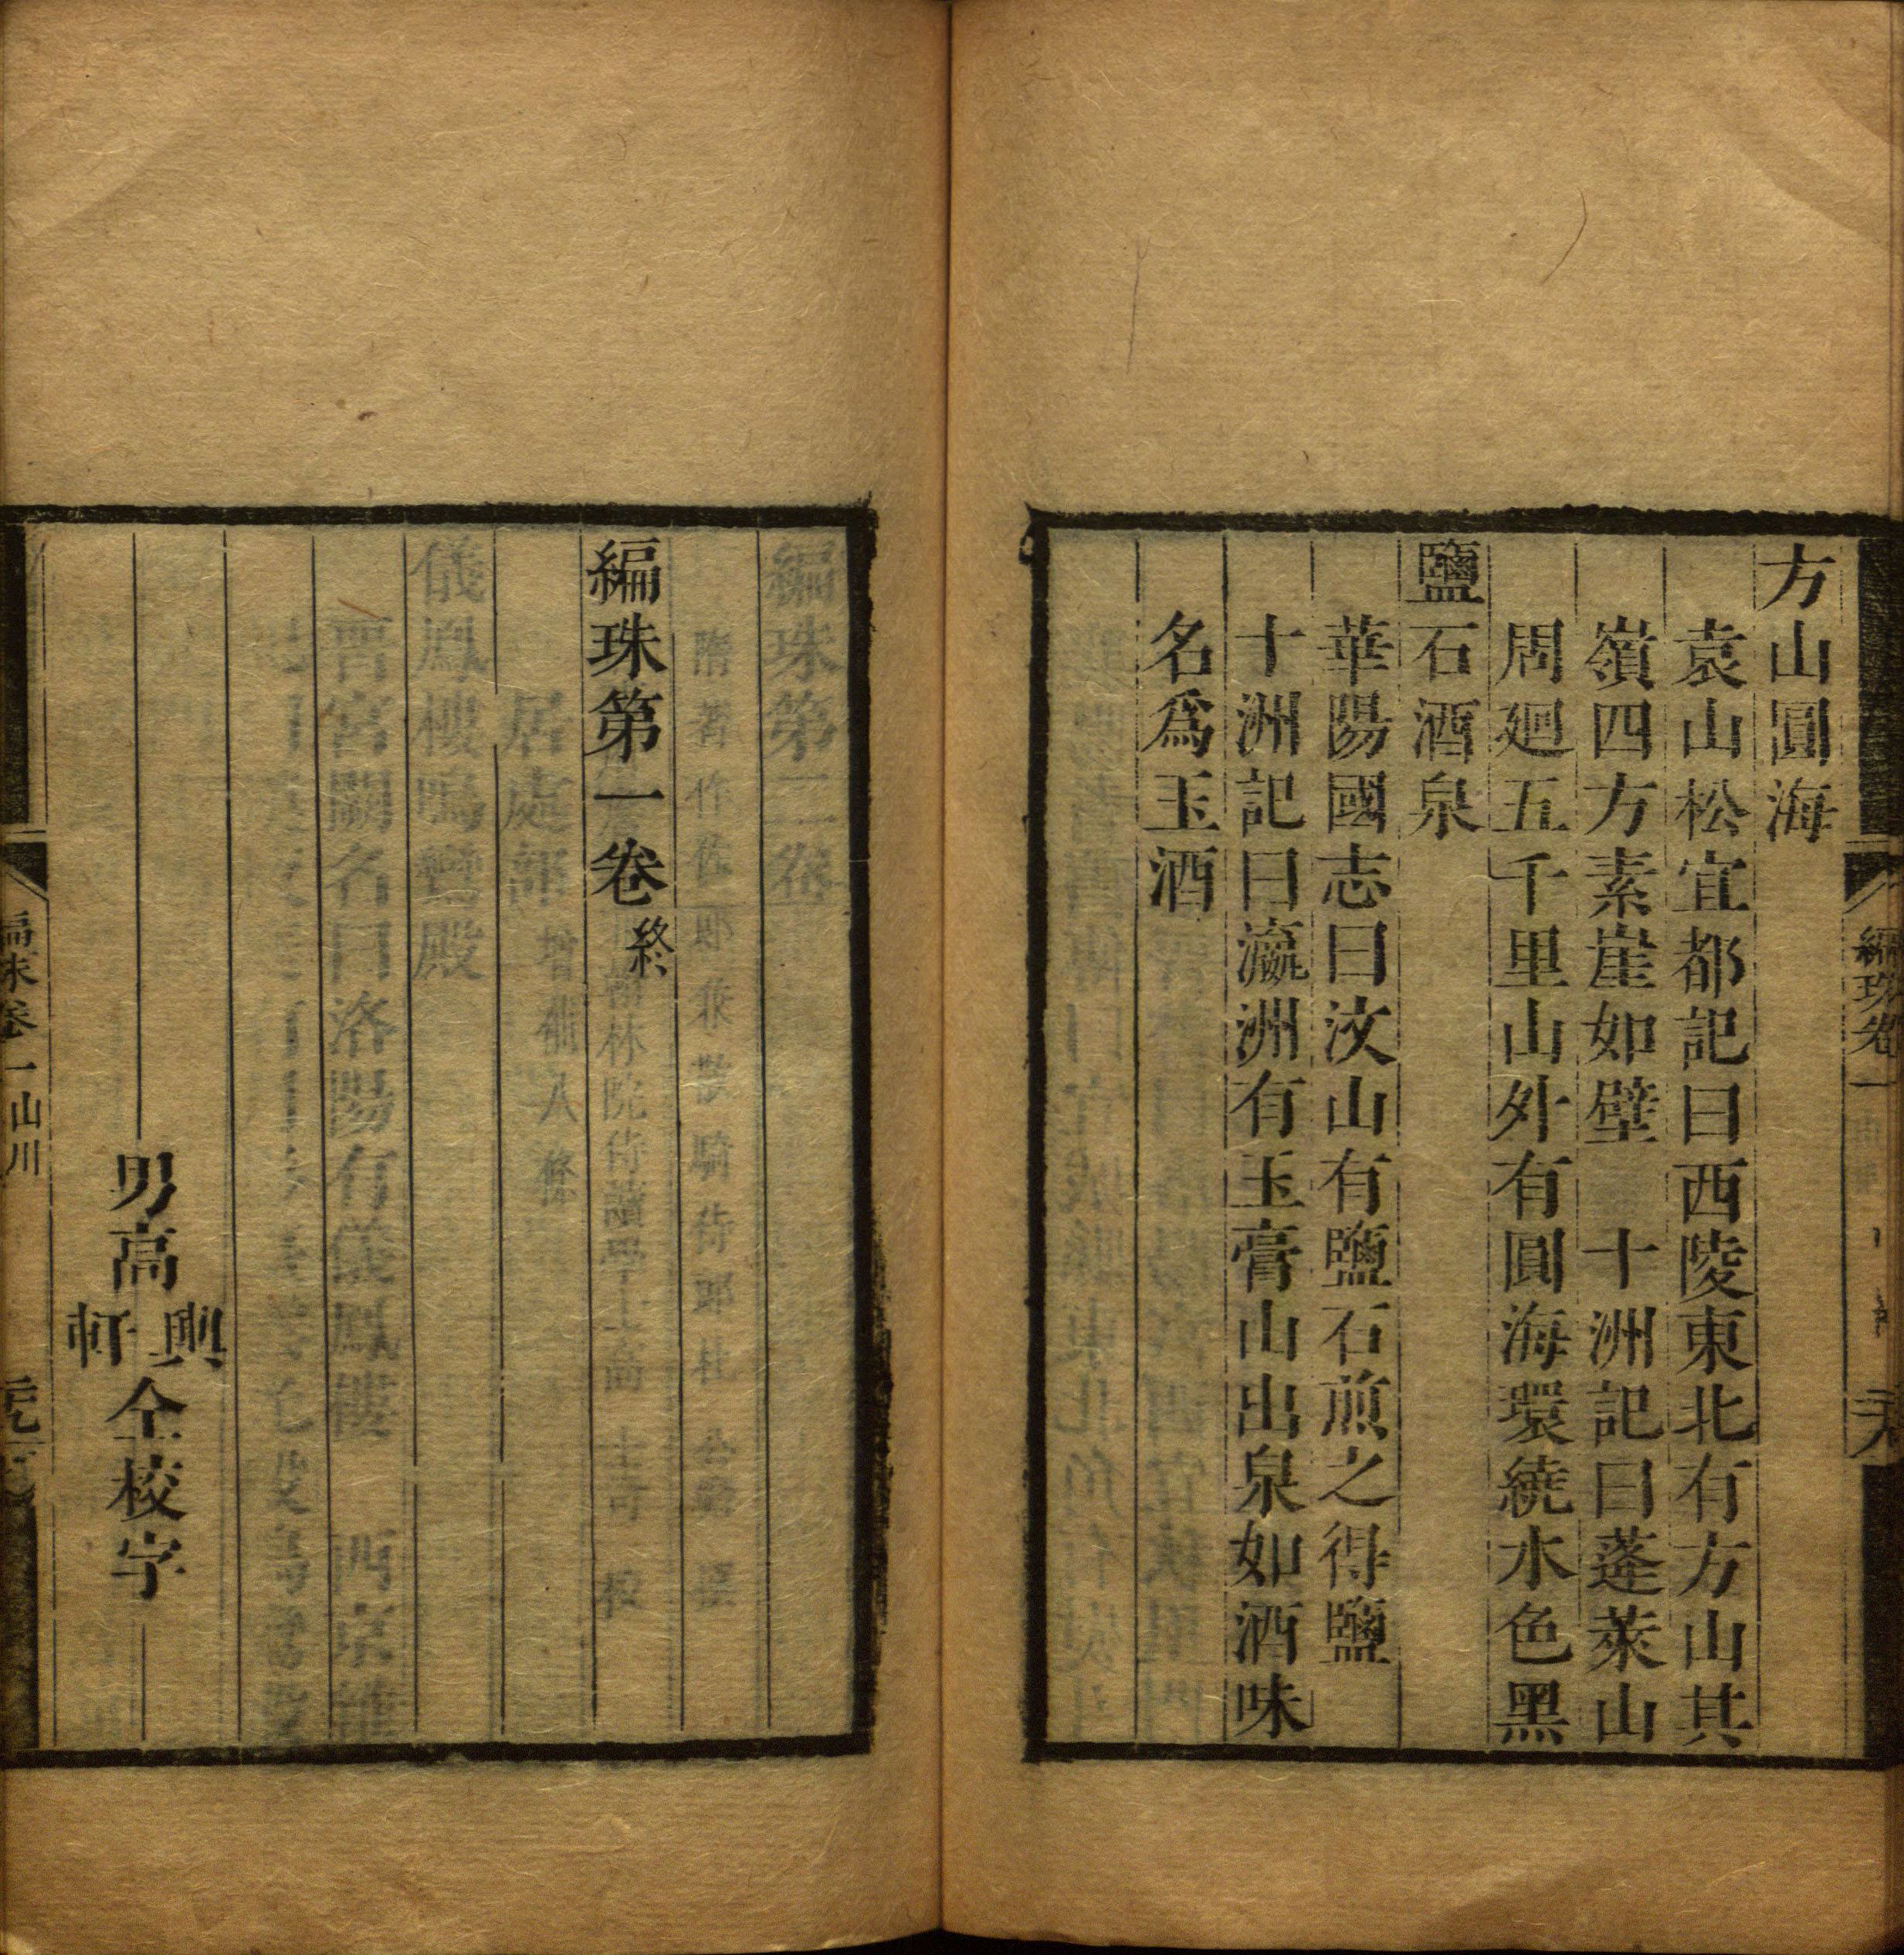 方山圓海
袁山松宜都記曰西陵東北有方山其
嶺四方素崖如壁　十洲記曰蓬萊山
周廻五千里山外有圓海環繞水色黑
鹽石酒泉
華陽國志曰汶山有鹽石煎之得鹽
十洲記曰瀛洲有玉膏山出泉如酒味
名爲玉酒
編珠卷一
編珠第一卷終
男高輿軒仝校字
編珠卷一山川